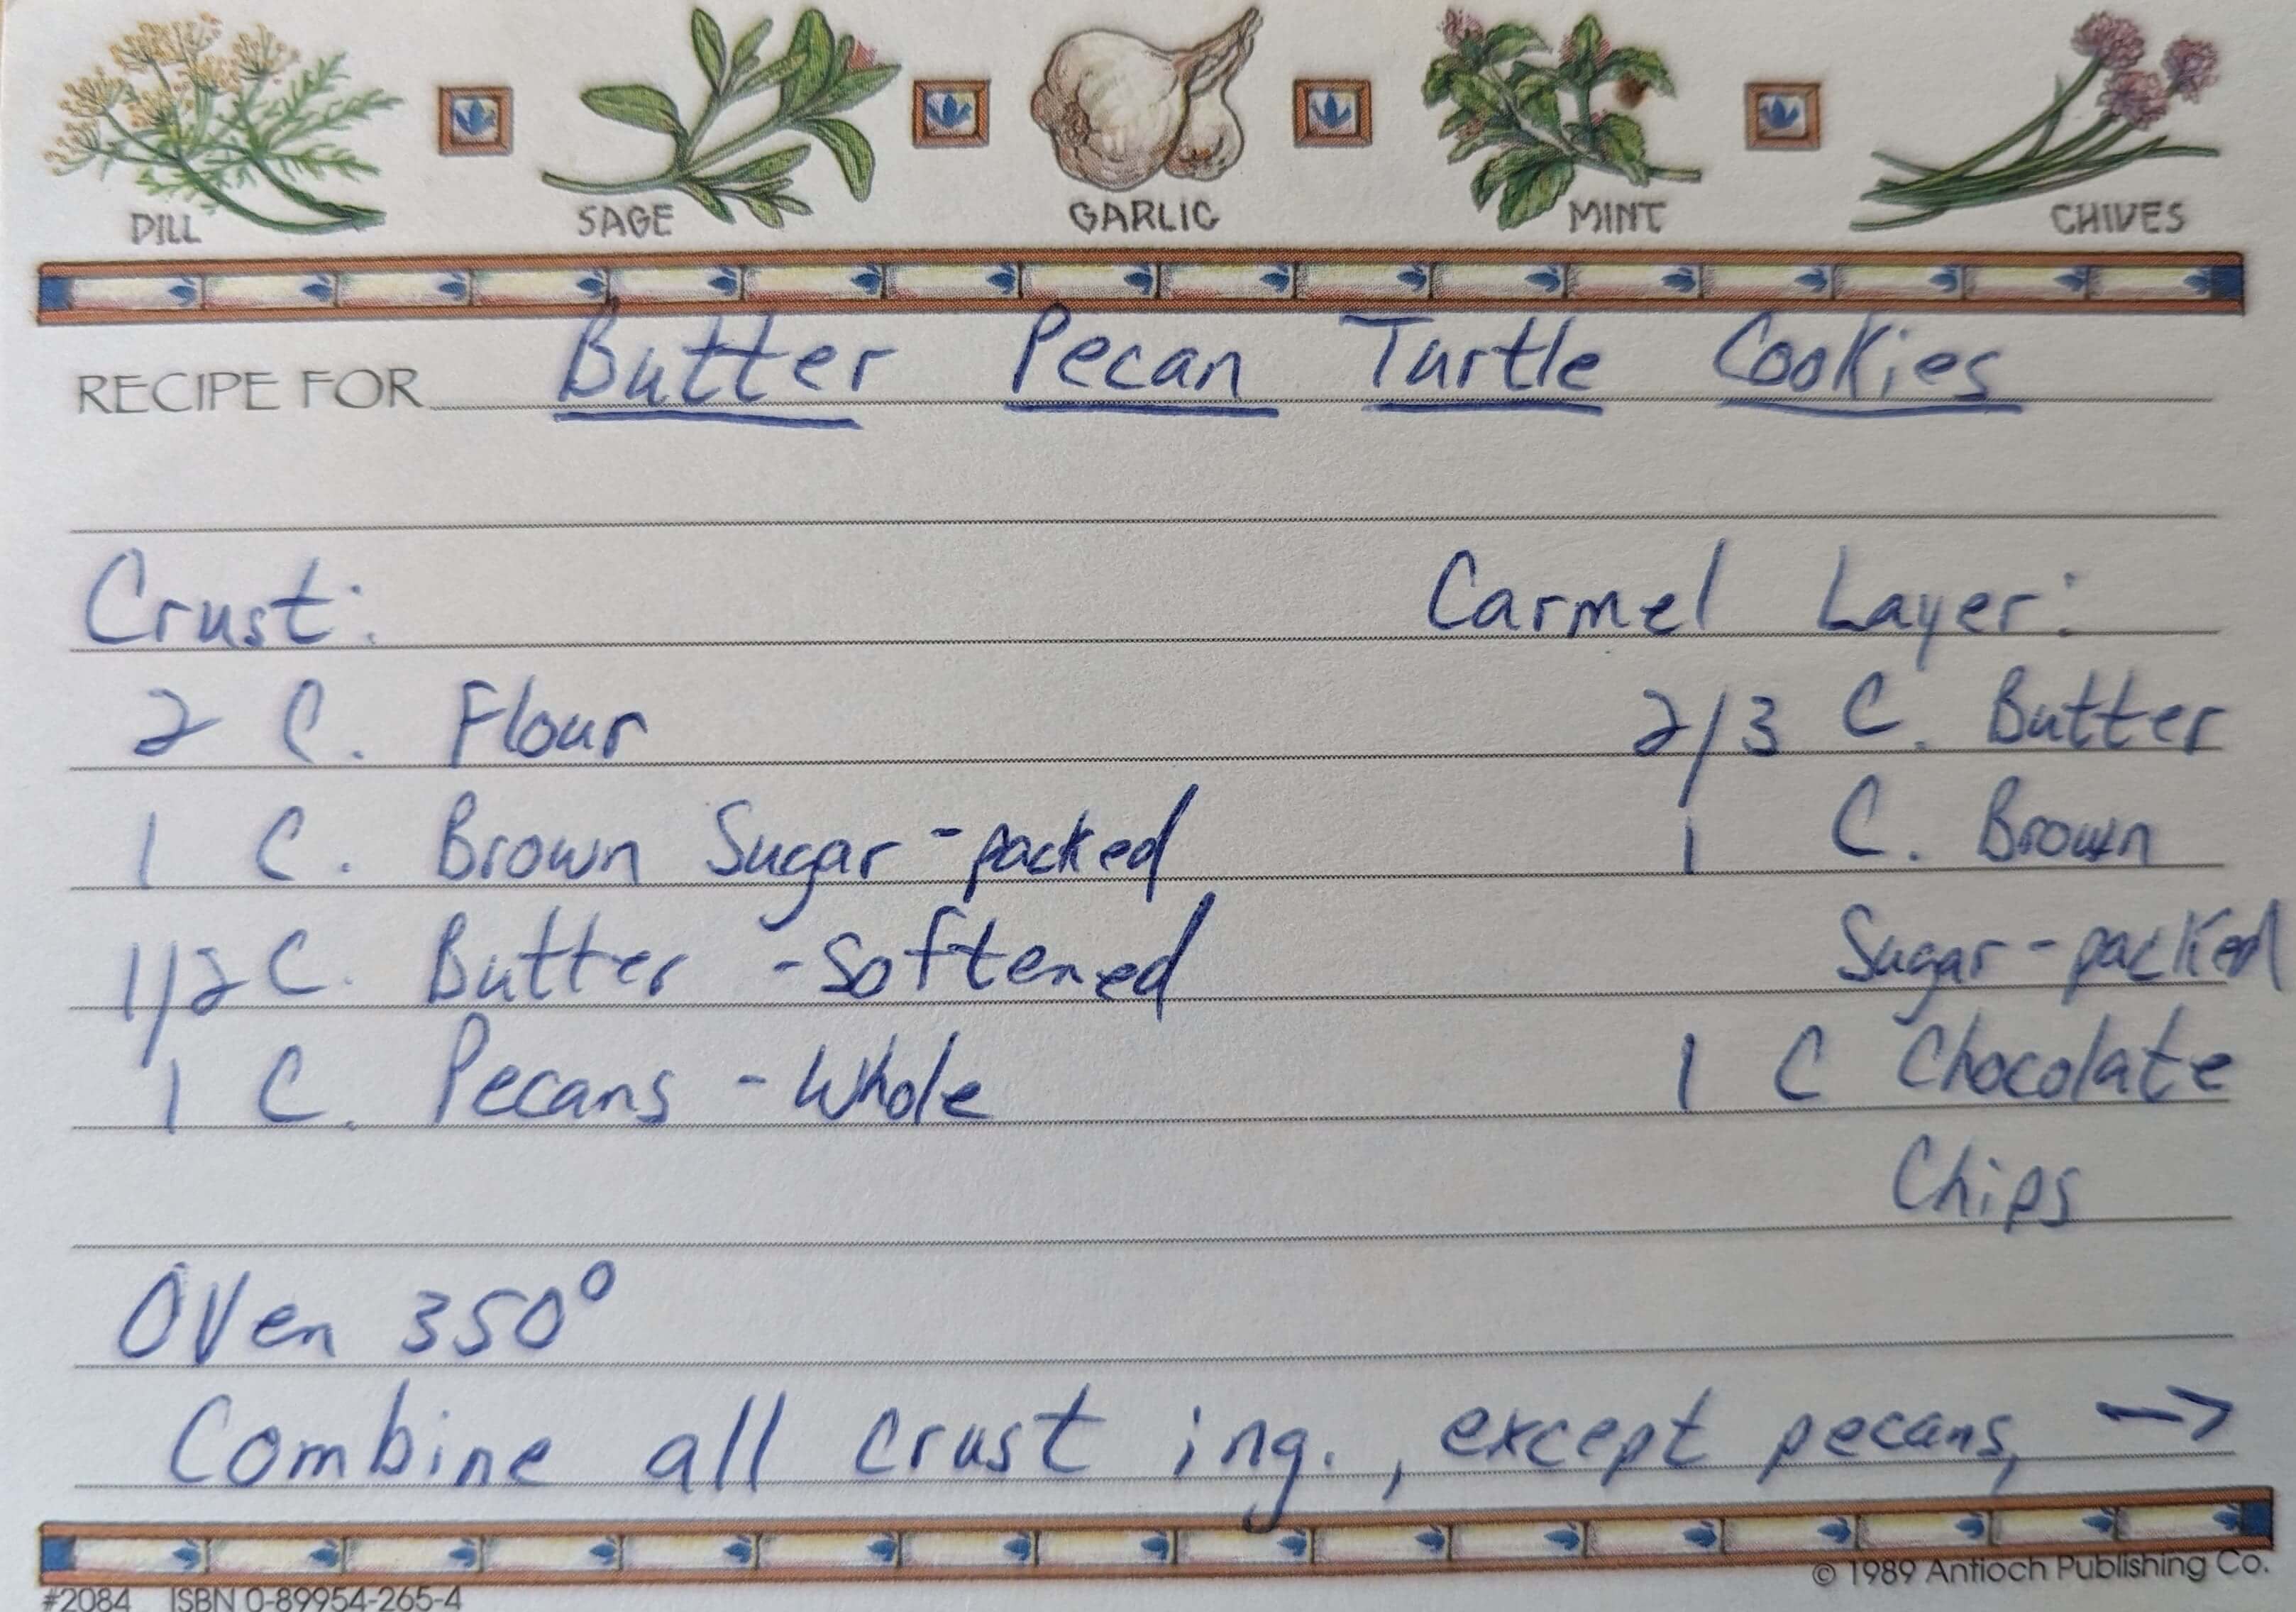 DILL SAGE GARLIC MINT CHIVES
RECIPE FOR Butter Pecan Turtle Cookies
Crust: Carmel Layer:
2 C. Flour 2/3 C. Butter
1 C. Brown Sugar - packed 1 C. Brown
Sugar - packed
1/2 C. Butter - softened
1 C. Pecans - Whole 1 C Chocolate
Chips
Oven 350°
Combine all crust ing., except pecans, →
#2084 ISBN 0-89954-265-4 © 1989 Antioch Publishing Co.